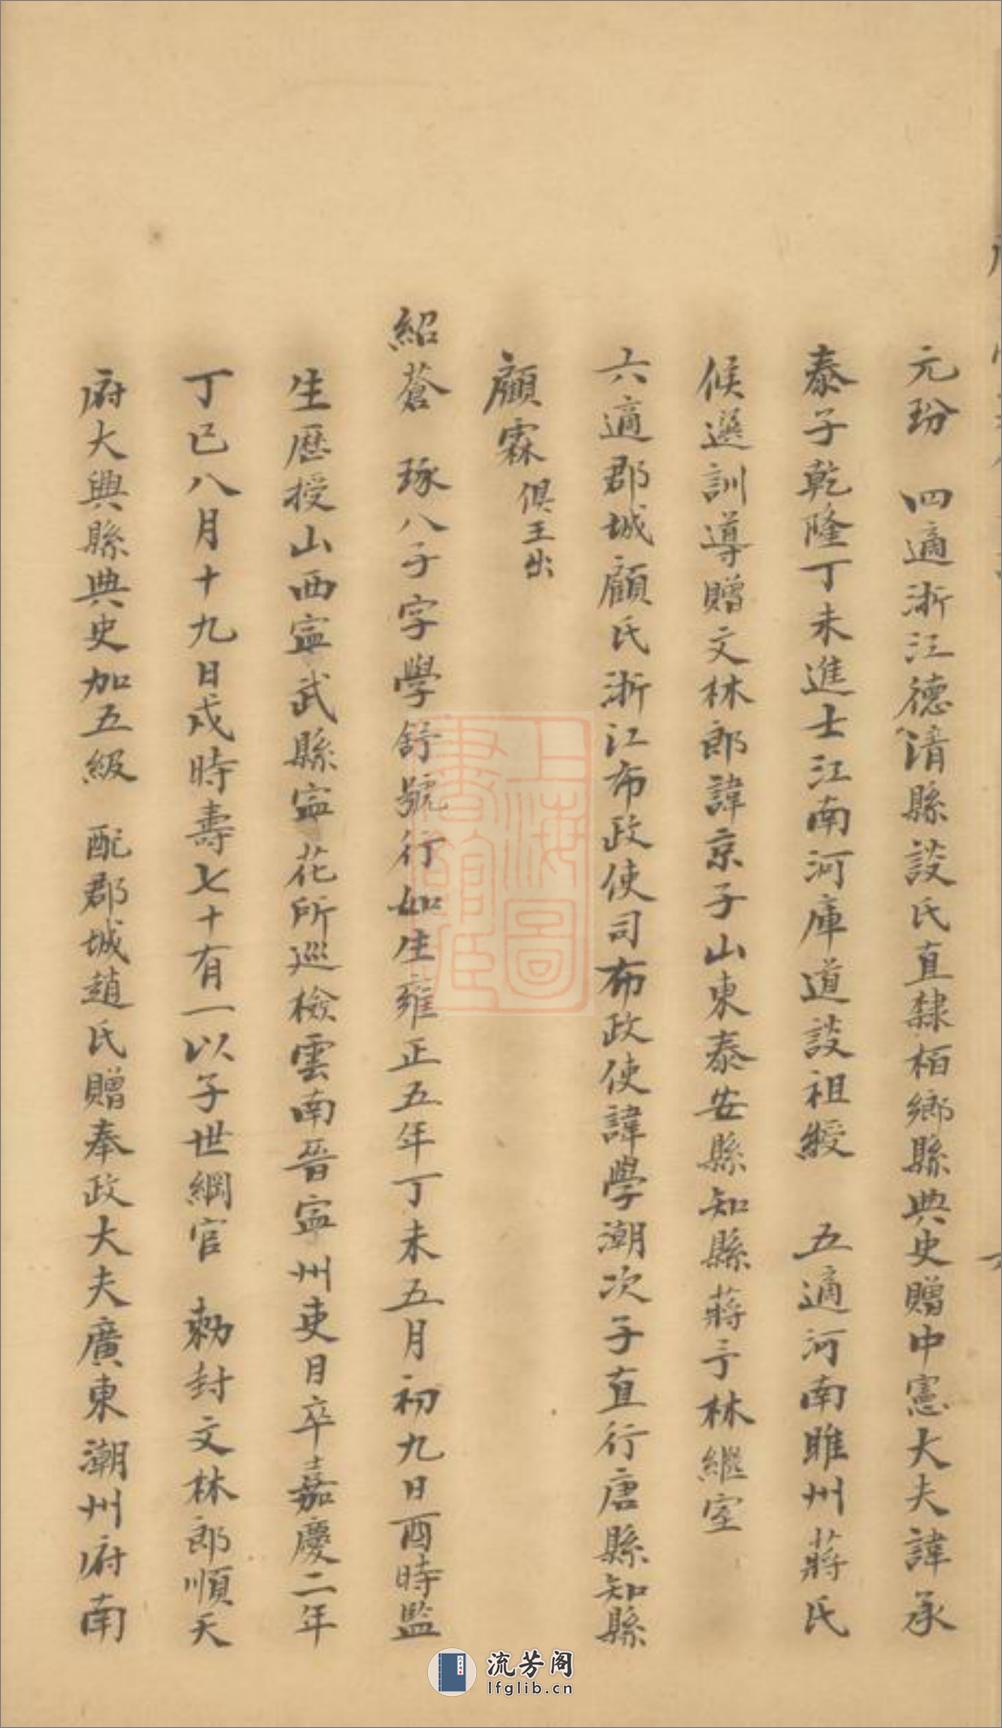 元玢　四適浙江德清縣談氏直隸栢鄉縣典史贈中憲大夫諱承
泰子乾隆丁未進士江南河庫道談祖綬　五適河南睢州蔣氏
候選訓導贈文林郎諱京子山東泰安縣知縣蔣予林繼室
六適郡城顧氏浙江布政使司布政使諱學潮次子直行唐縣知縣
顧霖俱王出
紹蒼　琢八子字學舒號行如生雍正五年丁未五月初九日酉時監
生歷授山西寧武縣寧花所巡檢雲南晉寧州吏目卒嘉慶二年
丁巳八月十九日戌時壽七十有一以子世綱官　勅封文林郎順天
府大興縣典史加五級　配郡城趙氏贈奉政大夫廣東潮州府南
上海圖書館藏
流芳阁
lfglib.cn